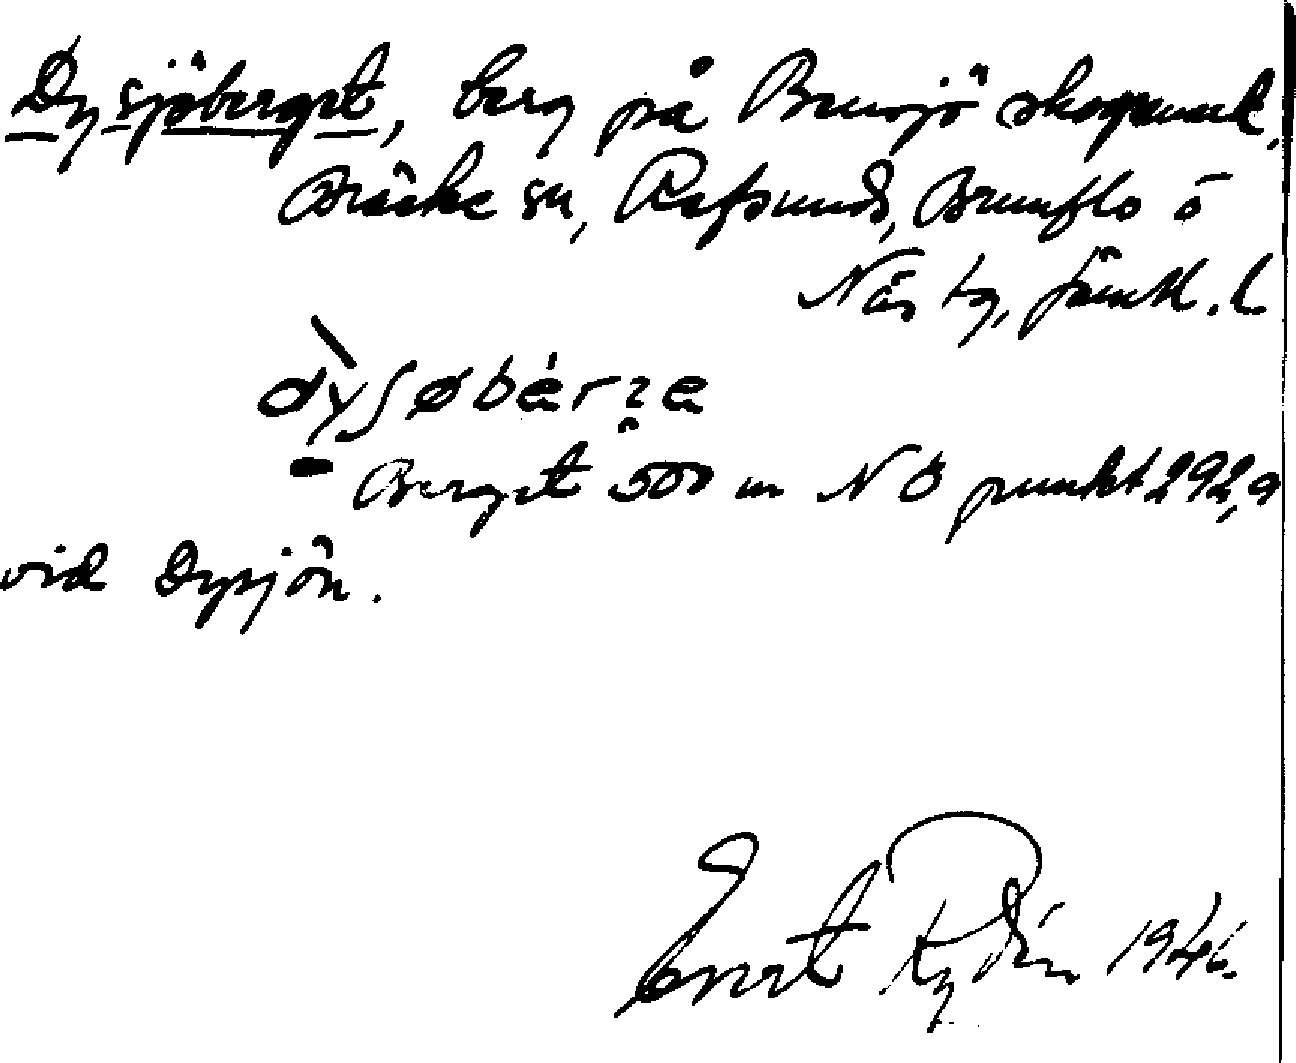 Dysjöberget, berg på Bensjö skogsmark,
Bräcke sn, Refsunds, Brunflo o
Näs tg, Jämtl. l
dysøbærʒe
Berget 500 m NÖ punkt 292,9
vid Dysjön.
Evert Rydén 1946.